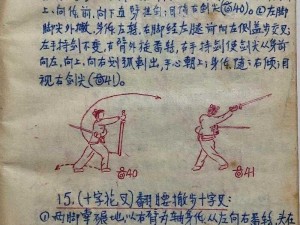 上,向体前,向下直劈挂剑;目视右剑尖(图40)。②左脚
脚尖外撇,身体左转,右脚经左腿前向左侧盖步交叉;
左手持剑不变,右臂外旋
右手持剑使剑尖从身前
向左,向上,向右
手心朝上;身体随之右倾;目
视右剑尖(图41)。
图40
图41
15.(十字花叉)翻腰撤步十字叉:
①两脚掌
地,以右臂为轴身体,从左向右